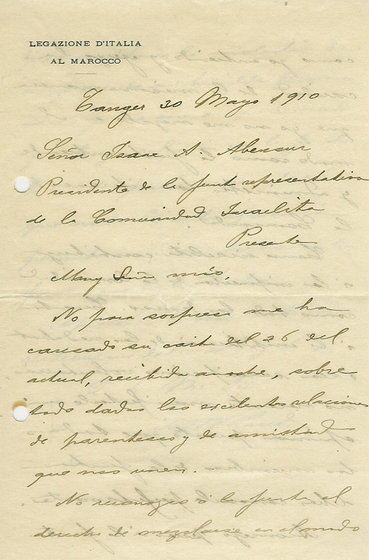 LEGAZIONE D'ITALIA
AL MAROCCO
Tanger 30 Mayo 1910
Señor Isaac A. Abensur
Presidente de la Junta representativa
de la Comunidad Israelita
Presente
Muy Señor mio,
No poca sorpresa me ha
causado su carta del 26 del
actual, recibida anoche, sobre
todo dadas las excelentes relaciones
de parentesco y de amistad
que nos unen.
No reconozco á la Junta el
derecho de mezclarse en el modo